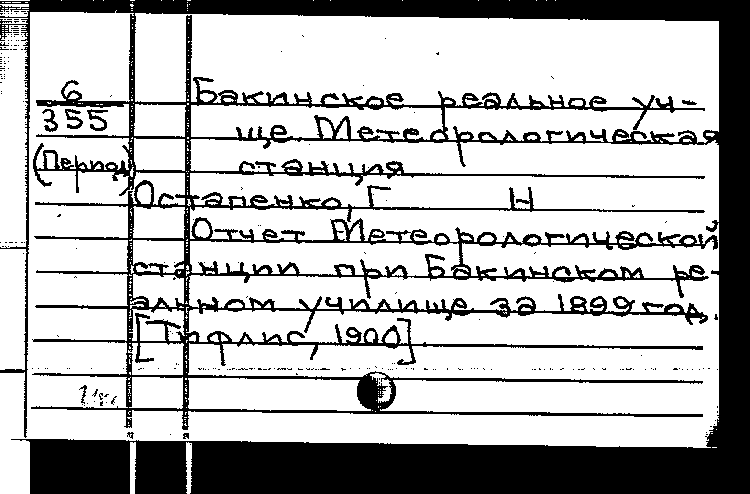 6
355
(Период)
Бакинское реальное уч-
ще. Метеорологическая
станция.
Остапенко, Г Н
Отчет Метеорологической
станции при Бакинском ре-
альном училище за 1899 год.
[Тифлис, 1900].